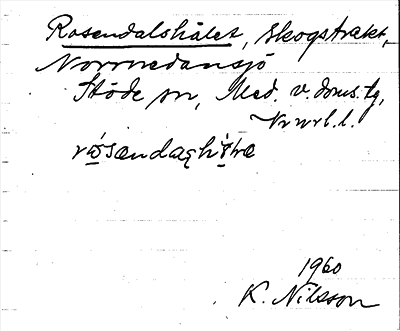 Rosendalshålet, skogstrakt,
Norrnedansjö
Stöde sn, Med. v. doms. tg,
Vnrl. l.
1960
K. Nilsson